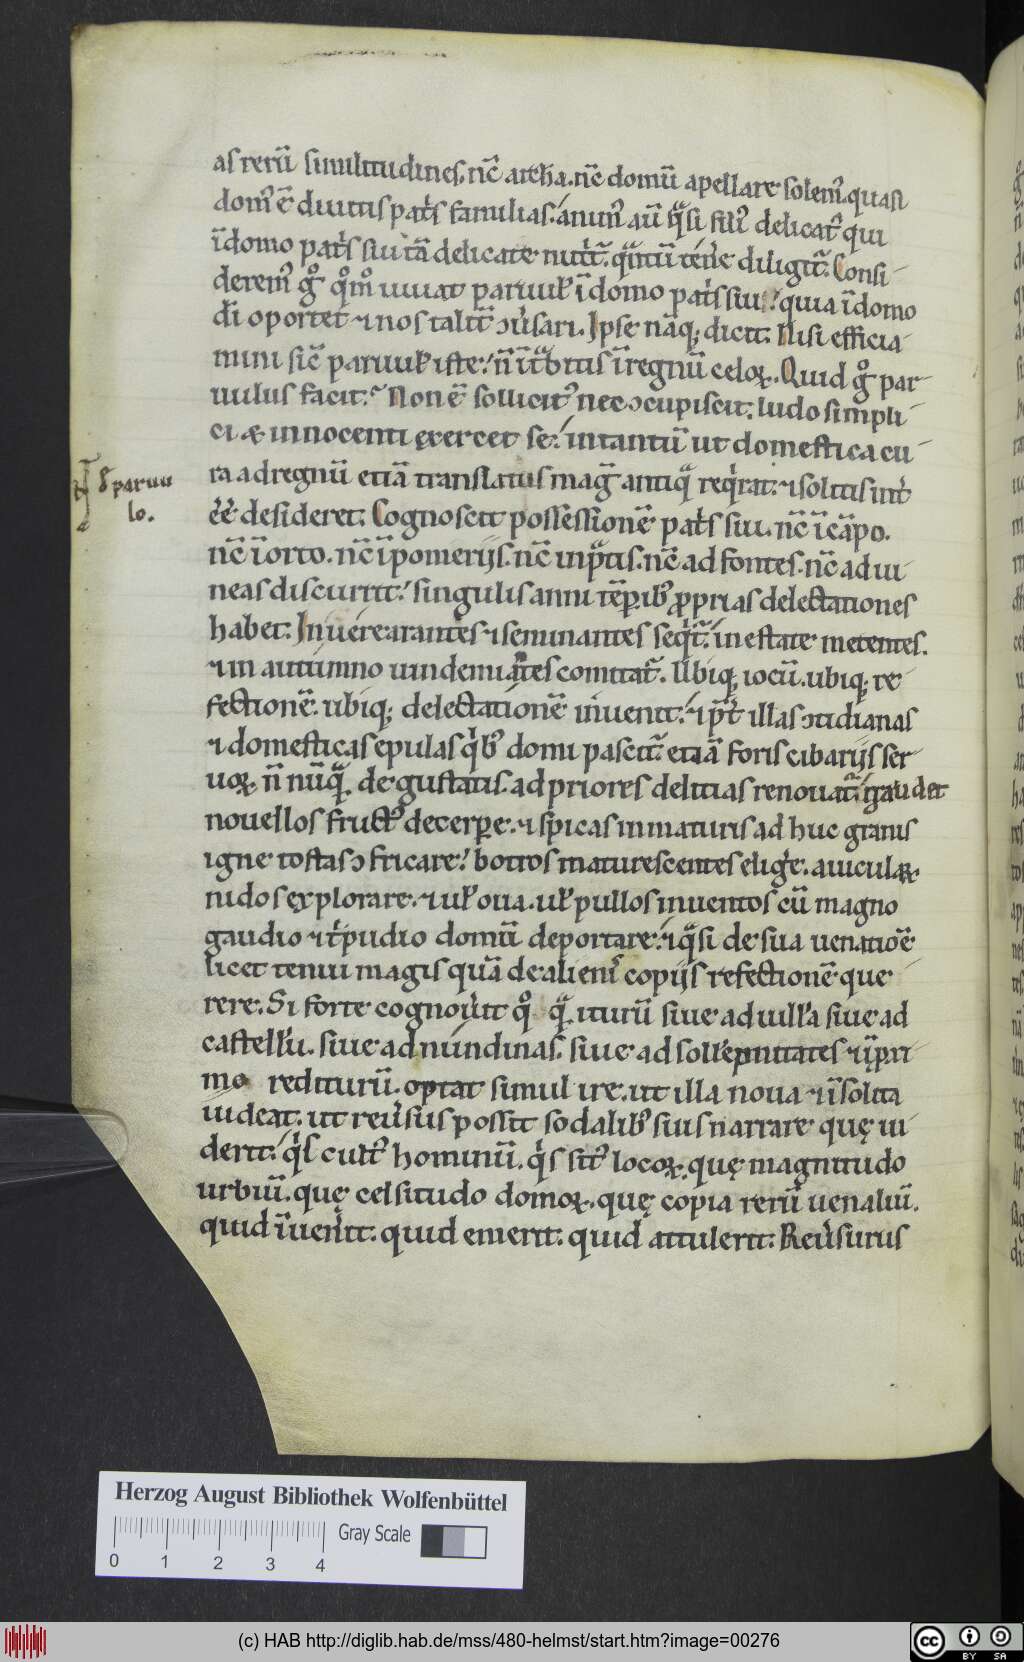 as rerū similitudines. nc̄ archa. nc̄ domū apellare solem᷒. quasi
dom᷒ ē diuitis pat̓s familias. anim᷒ aū q̄si fili᷒ delicat᷒ qui
ī domo pat̓s sui tā delicate nut̓t᷑. q̄ntū ten̓e diligit᷑. Consi
derem᷒ gͦ qͦmͦ uiuat paruul᷒ ī domo pat̓s sui. quia ī domo
di oportet ⁊ nos talit̓ ↄu̓sari. Ipse nāq; dicit. Nisi efficia
mini sic̄ paruul᷒ iste. n̄ īt̄bitis ī regnū celoꝝ. Quid gͦ par
uulus facit. Non ē sollicit᷒ nec ↄcupiscit. ludo simpli
ci & innocenti ęxercet se. intantū ut domestica cu
ra ad regnū etiā translatus mag̓ antiq̄ req̓rat. ⁊ solitis int̓
ēe desideret. Cognoscit possessionē pat̓s sui. nc̄ ī cāpo.
nc̄ ī orto. nc̄ ī pomerijs. nc̄ in p̄tis. nc̄ ad fontes. nc̄ ad ui
neas discurrit. singulis anni tēꝑib᷒ ꝓprias delectationes
habet. In uere arantes ⁊ seminantes seq̓t᷑. in estate metentes.
⁊ in autūmno uindemiātes comitat᷑. Ubiq; iocū. ubiq; re
fectionē. ubiq; delectationē inuenit. ⁊ p̄t̓ illas ↄtidianas
⁊ domesticas epulas q̓b᷒ domi pascit᷑. etiā foris cibarijs fer
uoꝝ n̄ nūq̄ degustatis. ad priores delitias renouat᷑. gaudet
nouellos fruct᷒ decerꝑe. ⁊ spicas inmaturis ad huc granis
igne tostas ↄfricare. botros maturescentes elig̓e. auiculaꝝ
nidos ęxplorare. ⁊ ul᷒ oua. ul᷒ pullos inuentos cū magno
gaudio ⁊ t̓pudio domū deportare. ⁊ q̄si de sua uenatiōe
licet tenui magis quā de alienis copijs refectionē que
rere. Si forte cognou̓it qͦ q̄ iturū siue ad uilla siue ad
castellū. siue ad nundinas. siue ad sollēpnitates
mo rediturū. optat simul ire. ut illa noua ⁊ īsolita
uideat. ut reu̓sus possit sodalib᷒ suis narrare quę ui
derit. q̓s cult᷒ hominū. q̓s sit᷒ locoꝝ. quę magnitudo
urbiū. quę celsitudo domoꝝ. quę copia rerū uenaliū.
quid īuen̓it. quid emerit. quid attulerit. Reu̓surus
paruu
lo.
Herzog August Bibliothek Wolfenbüttel
Gray Scale
0 1 2 3 4
(c) HAB http://diglib.hab.de/mss/480-helmst/start.htm?image=00276
cc BY SA